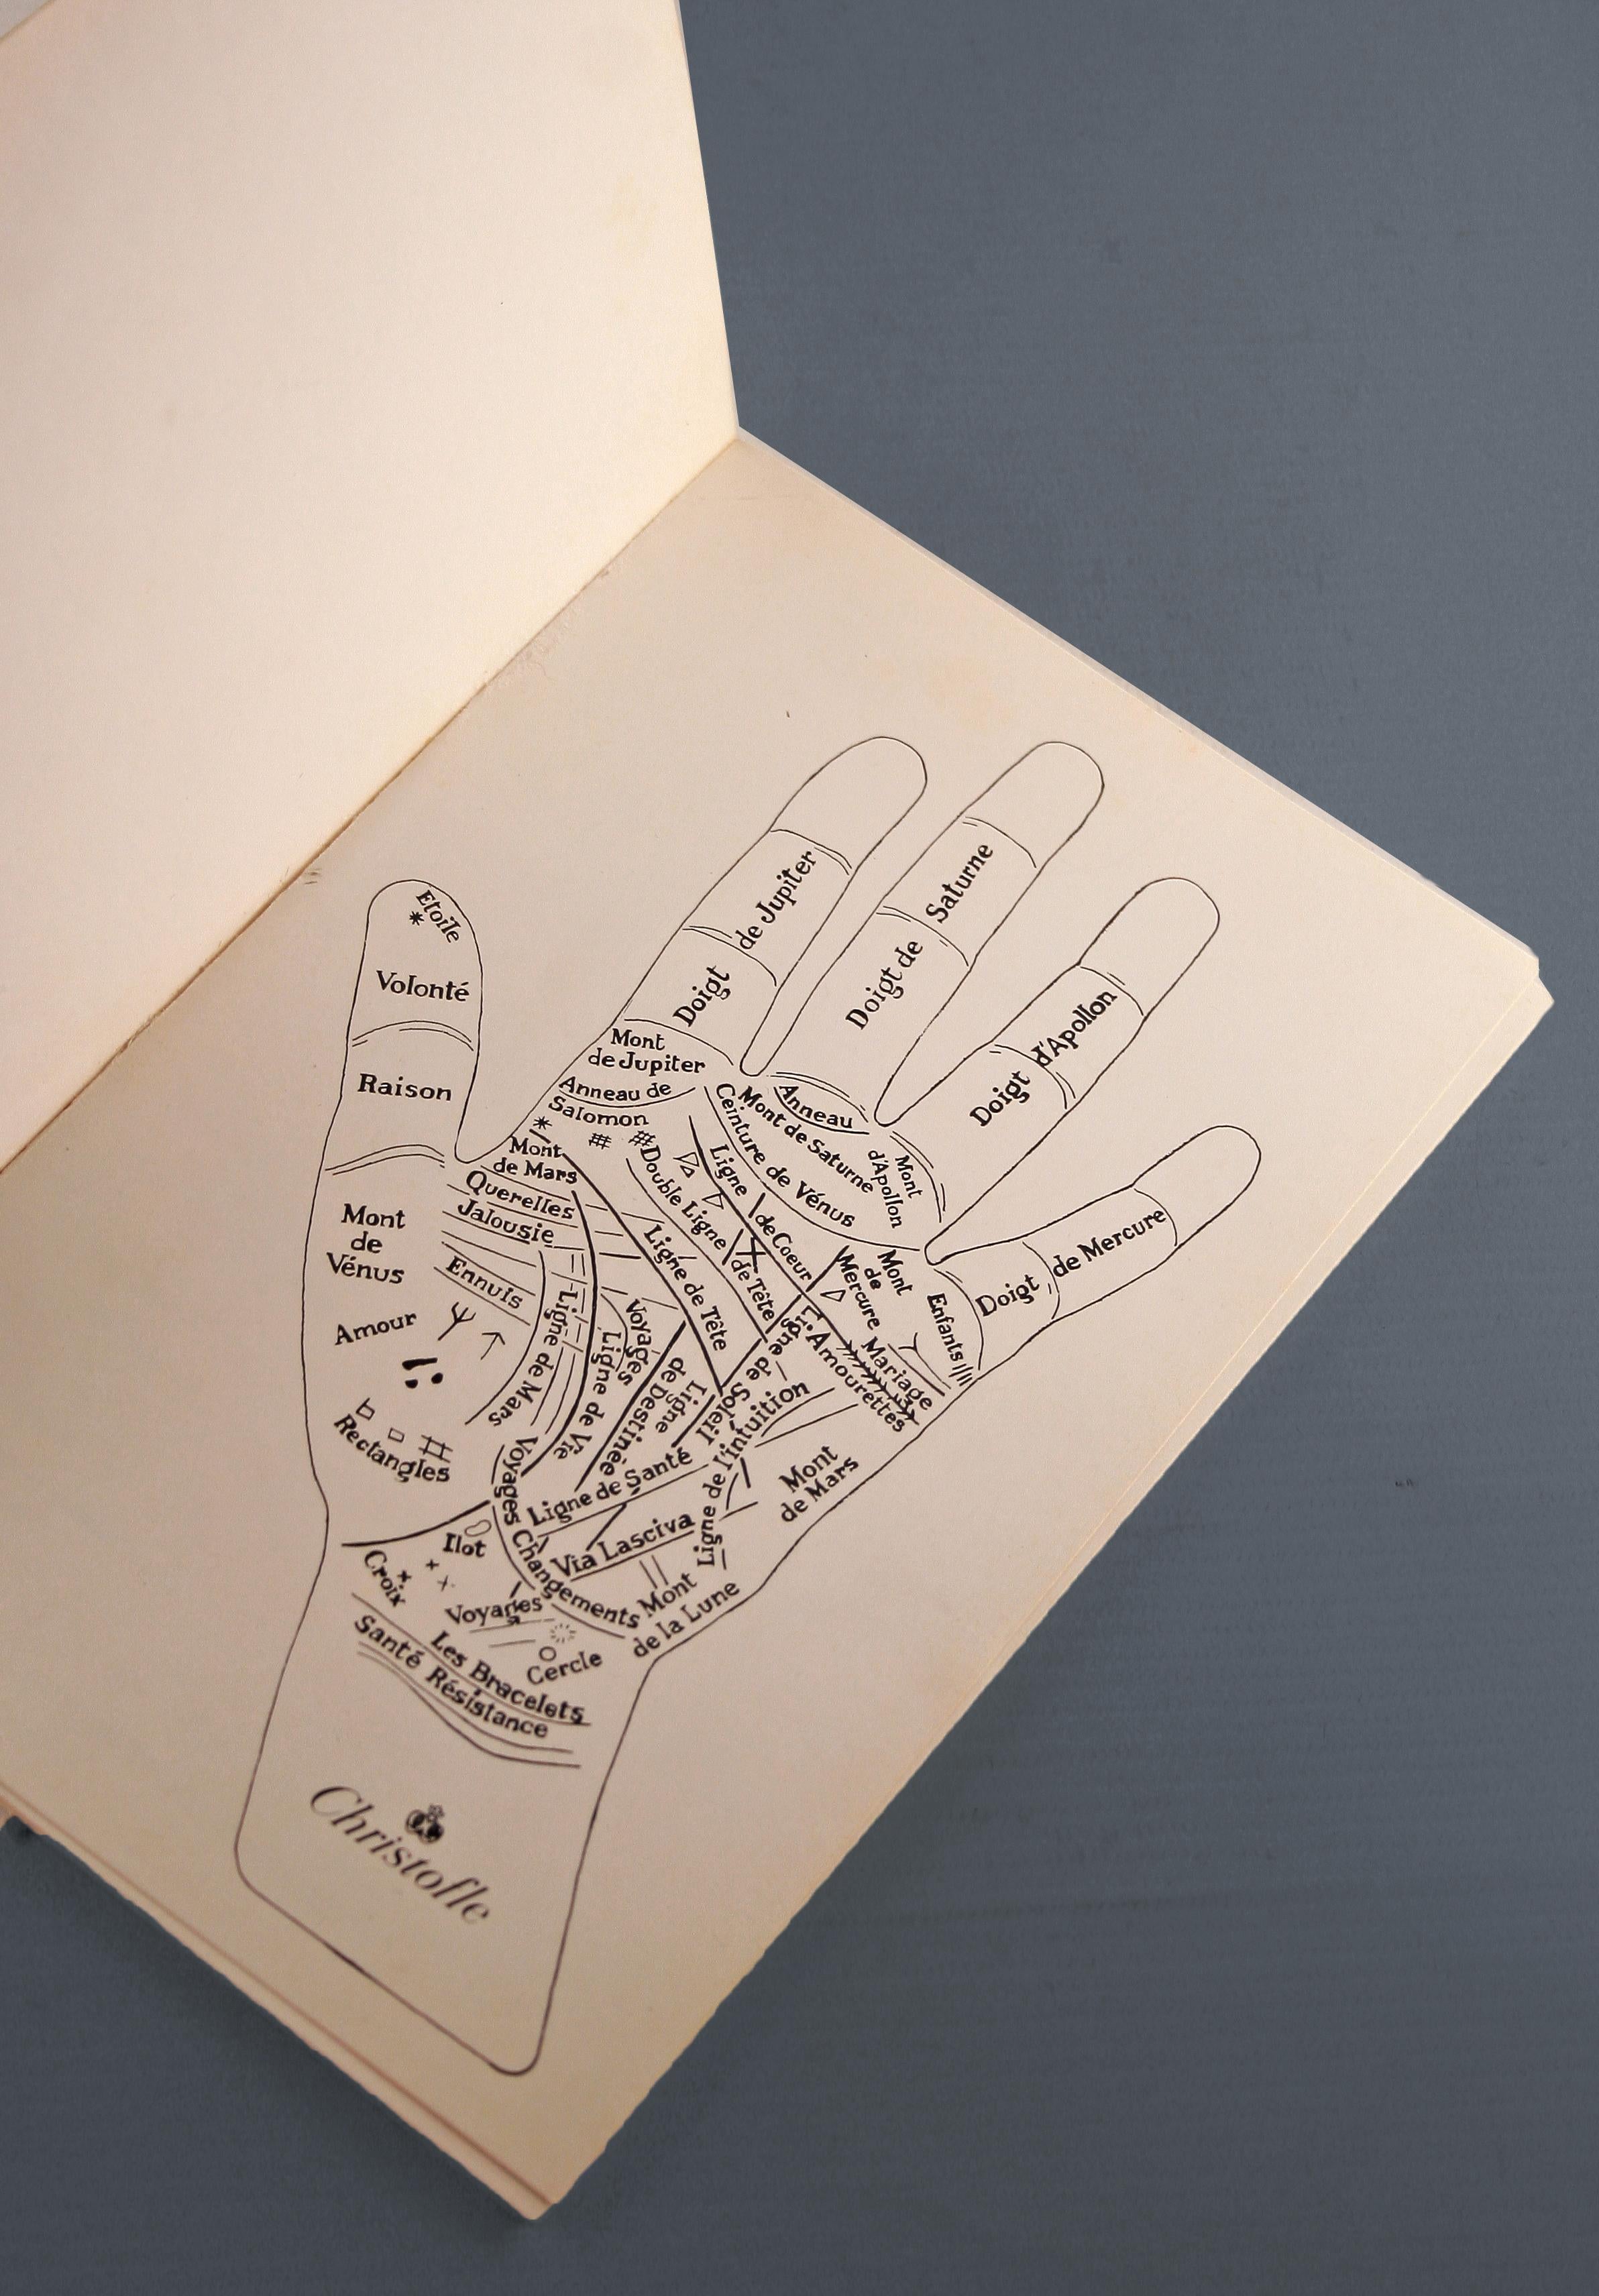 Etoile
Volonté
Raison
Doigt de Jupiter
Doigt de Saturne
Doigt d'Apollon
Doigt de Mercure
Mont
de Jupiter
Anneau de
Salomon
Anneau
Mont de Saturne
Ceinture de Vénus
Mont
d'Apollon
Mont
de Mars
Querelles
Jalousie
Ennuis
Mont
de
Vénus
Amour
Rectangles
Double Ligne de Tête
Ligne de Coeur
Ligne de Tête
Mont
de
Mercure
Enfants
Mariage
Amourettes
Voyages
Ligne de Mars
Ligne de Vie
Ligne
de Destinée
Ligne de Soleil
Ligne de l'intuition
Ligne de Santé
Via Lasciva
Mont
de Mars
Voyages Changements
Mont
de la Lune
Ilot
Croix
Voyages
Cercle
Les Bracelets
Santé Résistance
Christofle